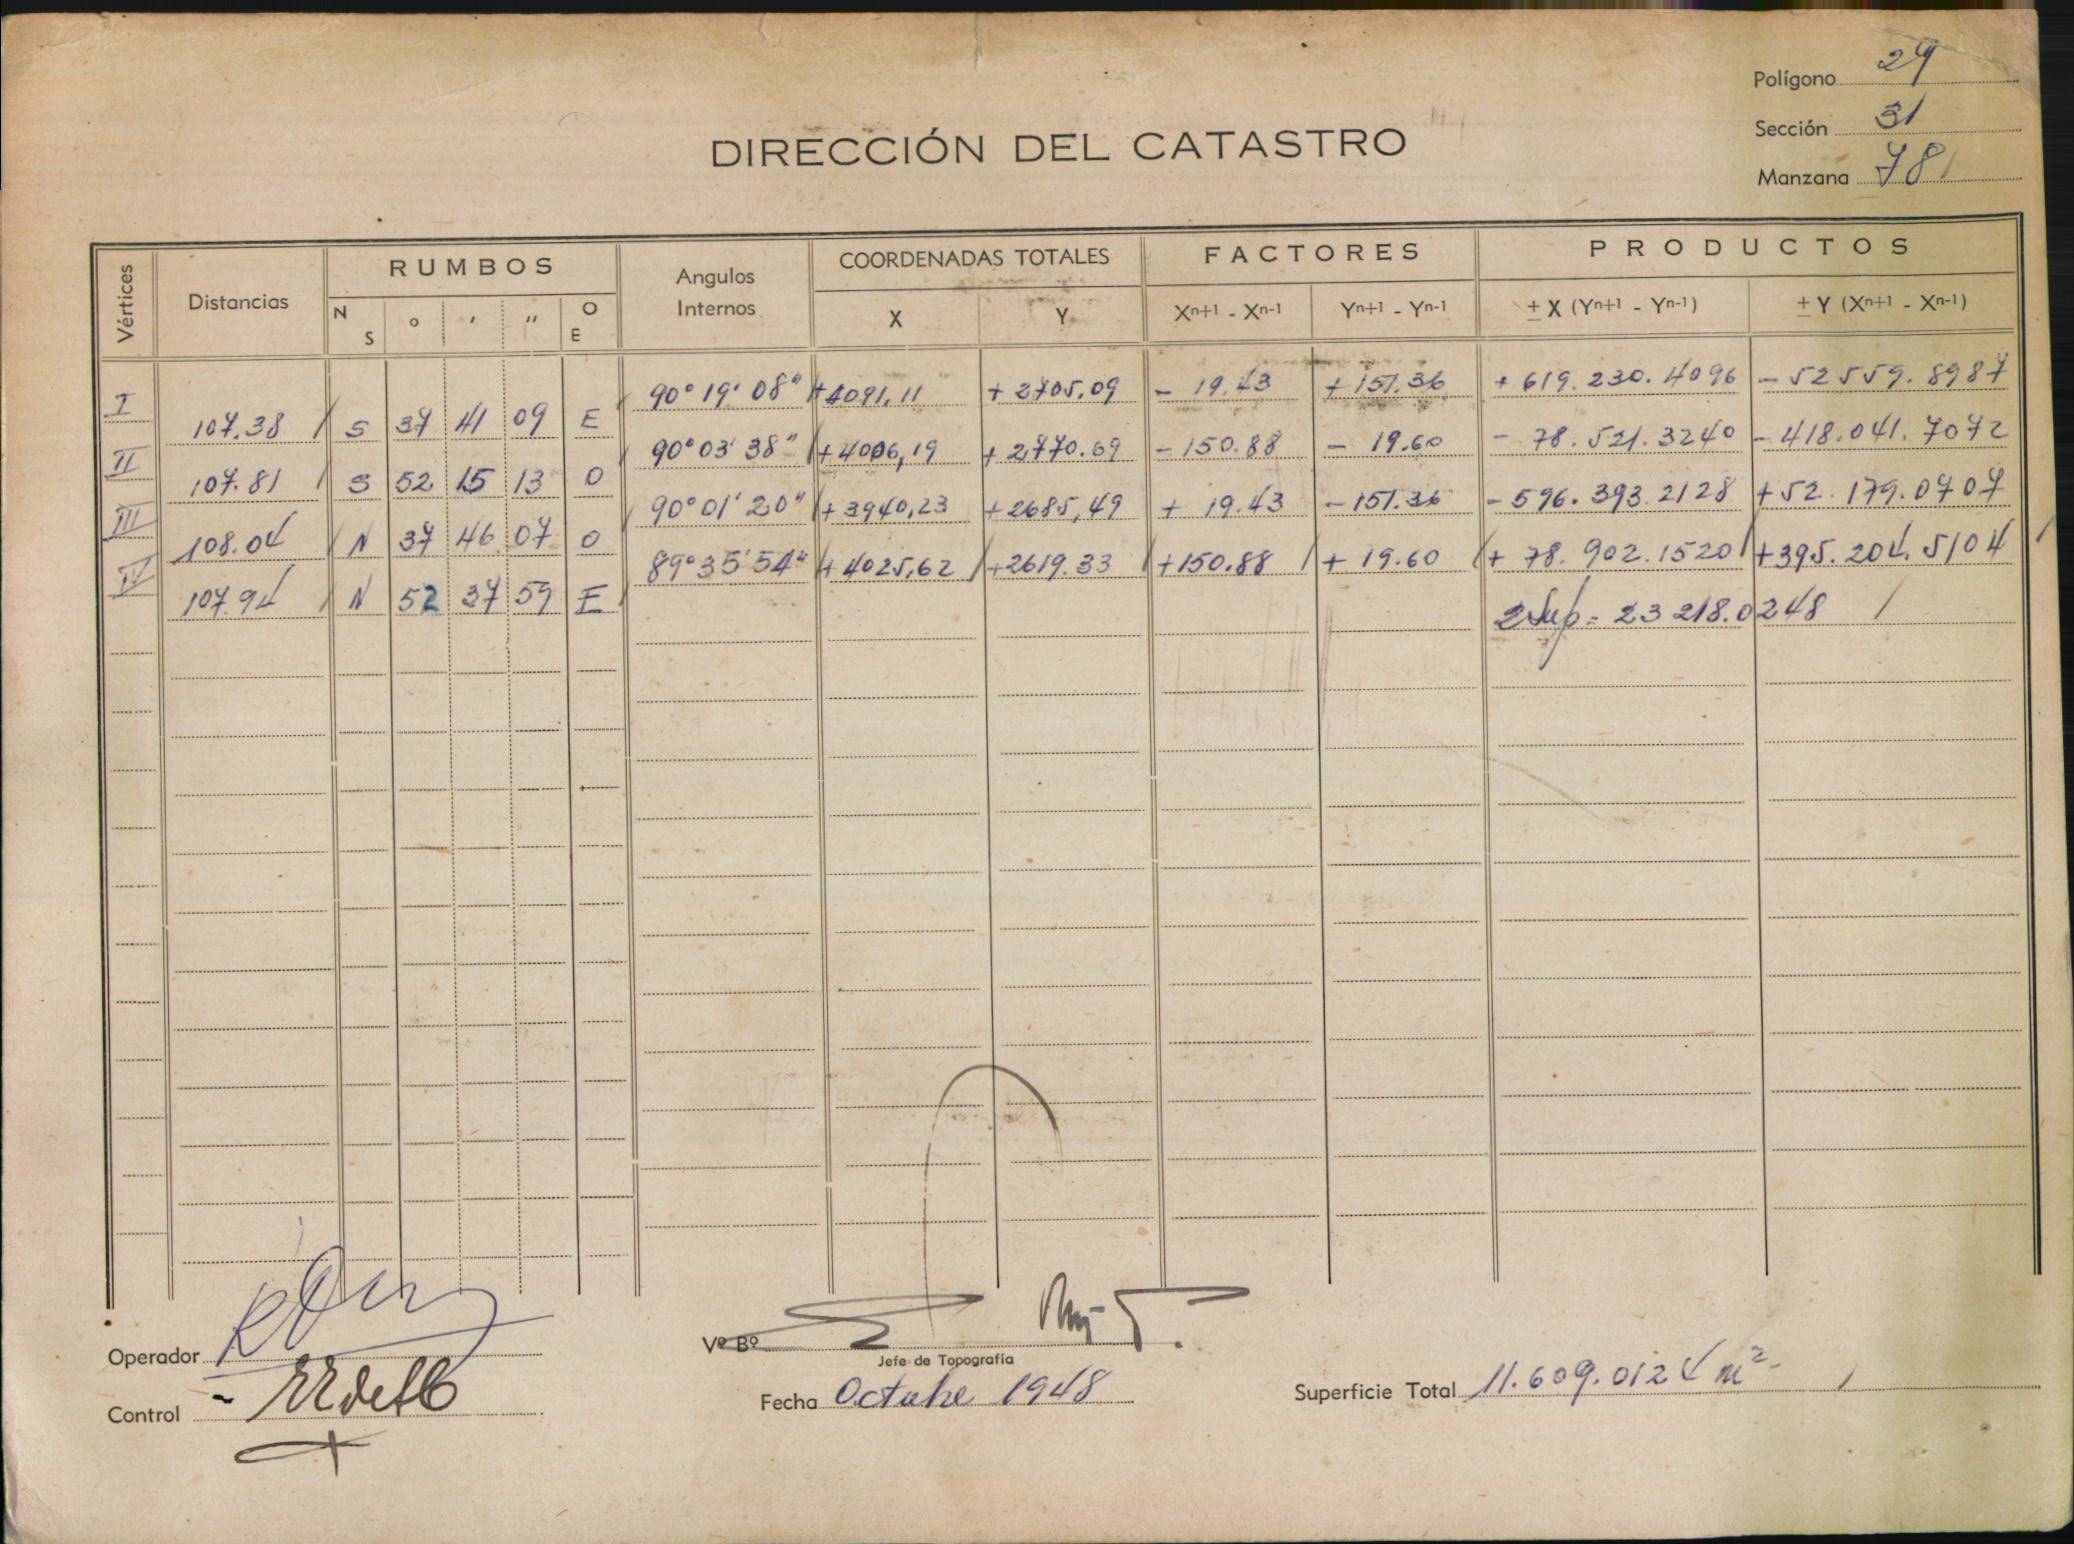 Polígono 29
Sección 31
Manzana 781
DIRECCIÓN DEL CATASTRO
Vértices Distancias RUMBOS Angulos Internos COORDENADAS TOTALES FACTORES PRODUCTOS
N S ° ' '' O E X Y Xn+1 - Xn-1 Yn+1 - Yn-1 ± X (Yn+1 - Yn-1) ± Y (Xn+1 - Xn-1)
I 90° 19' 08" +4091,11 + 2705,09 - 19.43 + 151.36 + 619.230.4096 - 52559.8987
107.38 S 37 41 09 E
II 90° 03' 38" +4006,19 + 2770.69 - 150.88 - 19.60 - 78.521.3240 - 418.041.7072
107.81 S 52 15 13 O
III 90° 01' 20" + 3940,23 + 2685,49 + 19.43 - 151.36 - 596.393.2128 + 52.179.0707
108.04 N 37 46 07 O
IV 89° 35' 54" + 4025,62 +2619.33 +150.88 + 19.60 + 78.902.1520 +395.204.5104
107.94 N 52 37 59 E
2Sup = 23 218.0248
Operador
Vº Bº
Jefe de Topografía
Control
Fecha Octubre 1948
Superficie Total 11.609.0124 m²